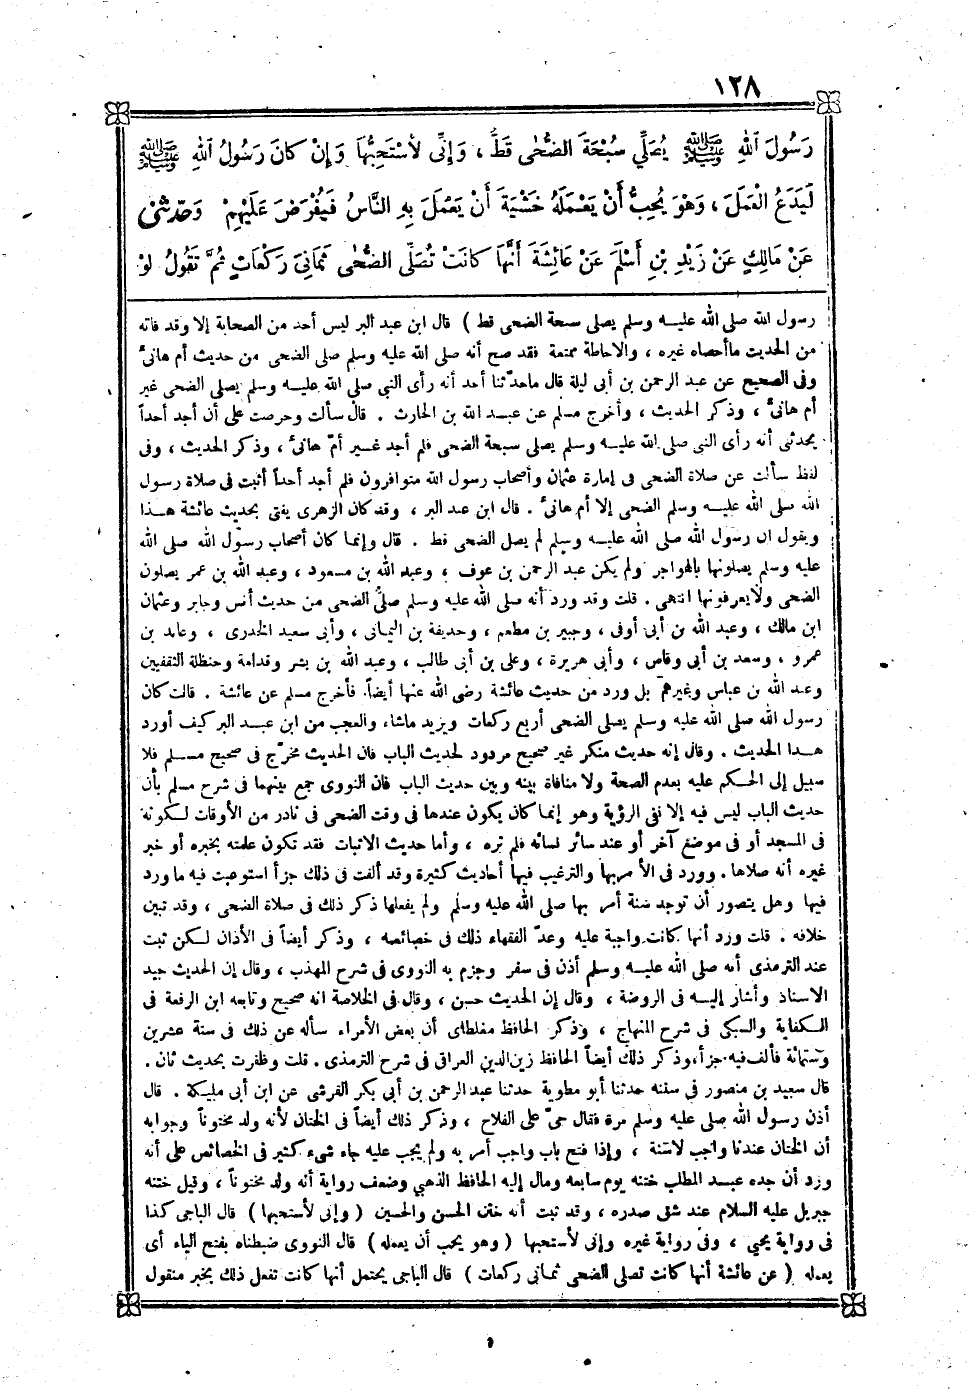 ١٢٨
رَسُولَ اللهِ ﷺ يُصَلِّي سُبْحَةَ الضُّحٰى قَطُّ ، وَإِنِّى لَأَسْتَحِبُّهَا وَإِنْ كَانَ رَسُولُ اللهِ ﷺ
لَيَدَعُ الْعَمَلَ ، وَهُوَ يُحِبُّ أَنْ يَعْمَلَهُ خَشْيَةَ أَنْ يَعْمَلَ بِهِ النَّاسُ فَيُفْرَضَ عَلَيْهِمْ وَحَدَّثَنِى
عَنْ مَالِكٍ عَنْ زَيْدِ بْنِ أَسْلَمَ عَنْ عَائِشَةَ أَنَّهَا كَانَتْ تُصَلِّى الضُّحٰى ثَمَانِىَ رَكَعَاتٍ ثُمَّ تَقُولُ لَوْ
رسول الله صلى الله عليــه وسلم يصلى سبحة الضحى قط ) قال ابن عبد البر ليس أحد من الصحابة إلا وقد فاته
من الحديث ما أحصاه غيره ، والاحاطة ممتنعة فقد صح أنه صلى الله عليه وسلم صلى الضحى من حديث أم هانىء
وفى الصحيح عن عبد الرحمن بن أبى ليلة قال ماحدّثنا أحد أنه رأى النبى صلى الله عليــه وسلم يصلى الضحى غير
أم هانىء ، وذكر الحديث ، وأخرج مسلم عن عبــد الله بن الحارث . قال سألت وحرصت على أن أجد أحداً
يحدثنى أنه رأى النبى صلى الله عليــه وسلم يصلى سبحة الضحى فلم أجد غــير أمّ هانىء ، وذكر الحديث ، وفى
لفظ سألت عن صلاة الضحى فى إمارة عثمان وأصحاب رسول الله متوافرون فلم أجد أحداً أثبت فى صلاة رسول
الله صلى الله عليــه وسلم الضحى إلا أم هانىء . قال ابن عبد البر ، وقد كان الزهرى يفتى بحديث عائشة هــذا
ويقول ان رسول الله صلى الله عليــه وسلم لم يصل الضحى قط . قال وإنما كان أصحاب رسول الله صلى الله
عليه وسلم يصلونها بالهواجر ولم يكن عبد الرحمن بن عوف ، وعبد الله بن مسعود ، وعبد الله بن عمر يصلون
الضحى ولا يعرفونها انتهى . قلت وقد ورد أنه صلى الله عليه وسلم صلى الضحى من حديث أنس وجابر وعثمان
ابن مالك ، وعبد الله بن أبى أوفى ، وجبير بن مطعم ، وحذيفة بن اليمانى ، وأبى سعيد الخدرى ، وعابد بن
عمرو ، وسعد بن أبى وقاص ، وأبى هريرة ، وعلى بن أبى طالب ، وعبد الله بن بشر وقدامة وحنظلة الثقفيين
وعبد الله بن عباس وغيرهم بل ورد من حديث عائشة رضى الله عنها أيضاً. فأخرج مسلم عن عائشة . قالت كان
رسول الله صلى الله عليه وسلم يصلى الضحى أربع ركعات ويزيد ماشاء والعجب من ابن عبــد البر كيف أورد
هــذا الحديث . وقال إنه حديث منكر غير صحيح مردود لحديث الباب فان الحديث مخرّج فى صحيح مســلم فلا
سبيل إلى الحــكم عليه بعدم الصحة ولا منافاة بينه وبين حديث الباب فان النووى جمع بينهما فى شرح مسلم بأن
حديث الباب ليس فيه إلا نفى الرؤية وهو إنما كان يكون عندها فى وقت الضحى فى نادر من الأوقات لــكونه
فى المسجد أو فى موضع آخر أو عند سائر نسائه فلم تره ، وأما حديث الاثبات فقد تكون علمته بخبره أو خبر
غيره أنه صلاها . وورد فى الأمر بها والترغيب فيها أحاديث كثيرة وقد ألفت فى ذلك جزأ استوعبت فيه ما ورد
فيها وهل يتصور أن توجد سنة أمر بها صلى الله عليه وسلم ولم يفعلها ذكر ذلك فى صلاة الضحى ، وقد تبين
خلافه . قلت ورد أنها كانت واجبة عليه وعدّ الفقهاء ذلك فى خصائصه ، وذكر أيضاً فى الأذان لــكن ثبت
عند الترمذى أنه صلى الله عليــه وسلم أذن فى سفر وجزم به النووى فى شرح المهذب ، وقال إن الحديث جيد
الاسناد وأشار إليــه فى الروضة ، وقال إن الحديث حسن ، وقال فى الخلاصة انه صحيح وتابعه ابن الرفعة فى
الــكفاية والسبكى فى شرح المنهاج ، وذكر الحافظ مغلطاى أن بعض الأمراء سأله عن ذلك فى سنة عشرين
وستمائة فألف فيه جزأ، وذكر ذلك أيضاً الحافظ زين الدين العراقى فى شرح الترمذى . قلت وظفرت بحديث ثان .
قال سعيد بن منصور فى سننه حدثنا أبو معاوية حدثنا عبد الرحمن بن أبى بكر القرشى عن ابن أبى مليكة . قال
أذن رسول الله صلى عليه وسلم مرة فقال حىّ على الفلاح ، وذكر ذلك أيضاً فى الختان لأنه ولد مختوناً وجوابه
أن الختان عندنا واجب لاسنة ، وإذا فتح باب واجب أمر به ولم يجب عليه جاء شىء كثير فى الخصائص على أنه
ورد أن جده عبــد المطلب ختنه يوم سابعه ومال إليه الحافظ الذهبى وضعف رواية أنه ولد مختوناً ، وقيل ختنه
جبريل عليه السلام عند شق صدره ، وقد ثبت أنه ختن الحسن والحسين ( وإنى لأستحبها ) قال الباجى كذا
فى رواية يحيى ، وفى رواية غيره وإنى لأستحبها ( وهو يحب أن يعمله ) قال النووى ضبطناه بفتح الياء أى
يعمله ( عن عائشة أنها كانت تصلى الضحى ثمانى ركعات ) قال الباجى يحتمل أنها كانت تفعل ذلك بخبر منقول